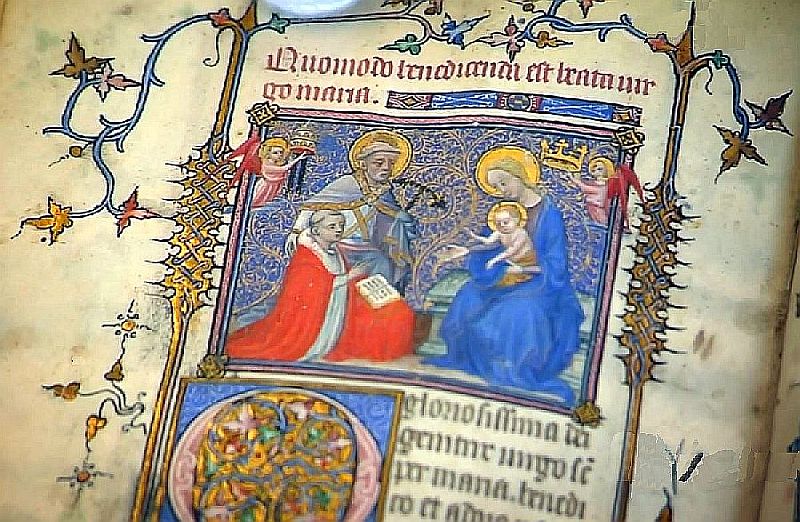 Quomodo benedicenda est beata vir
go maria.
gloriosissima dei
genitrix virgo sẽ
per maria. benedi
co et